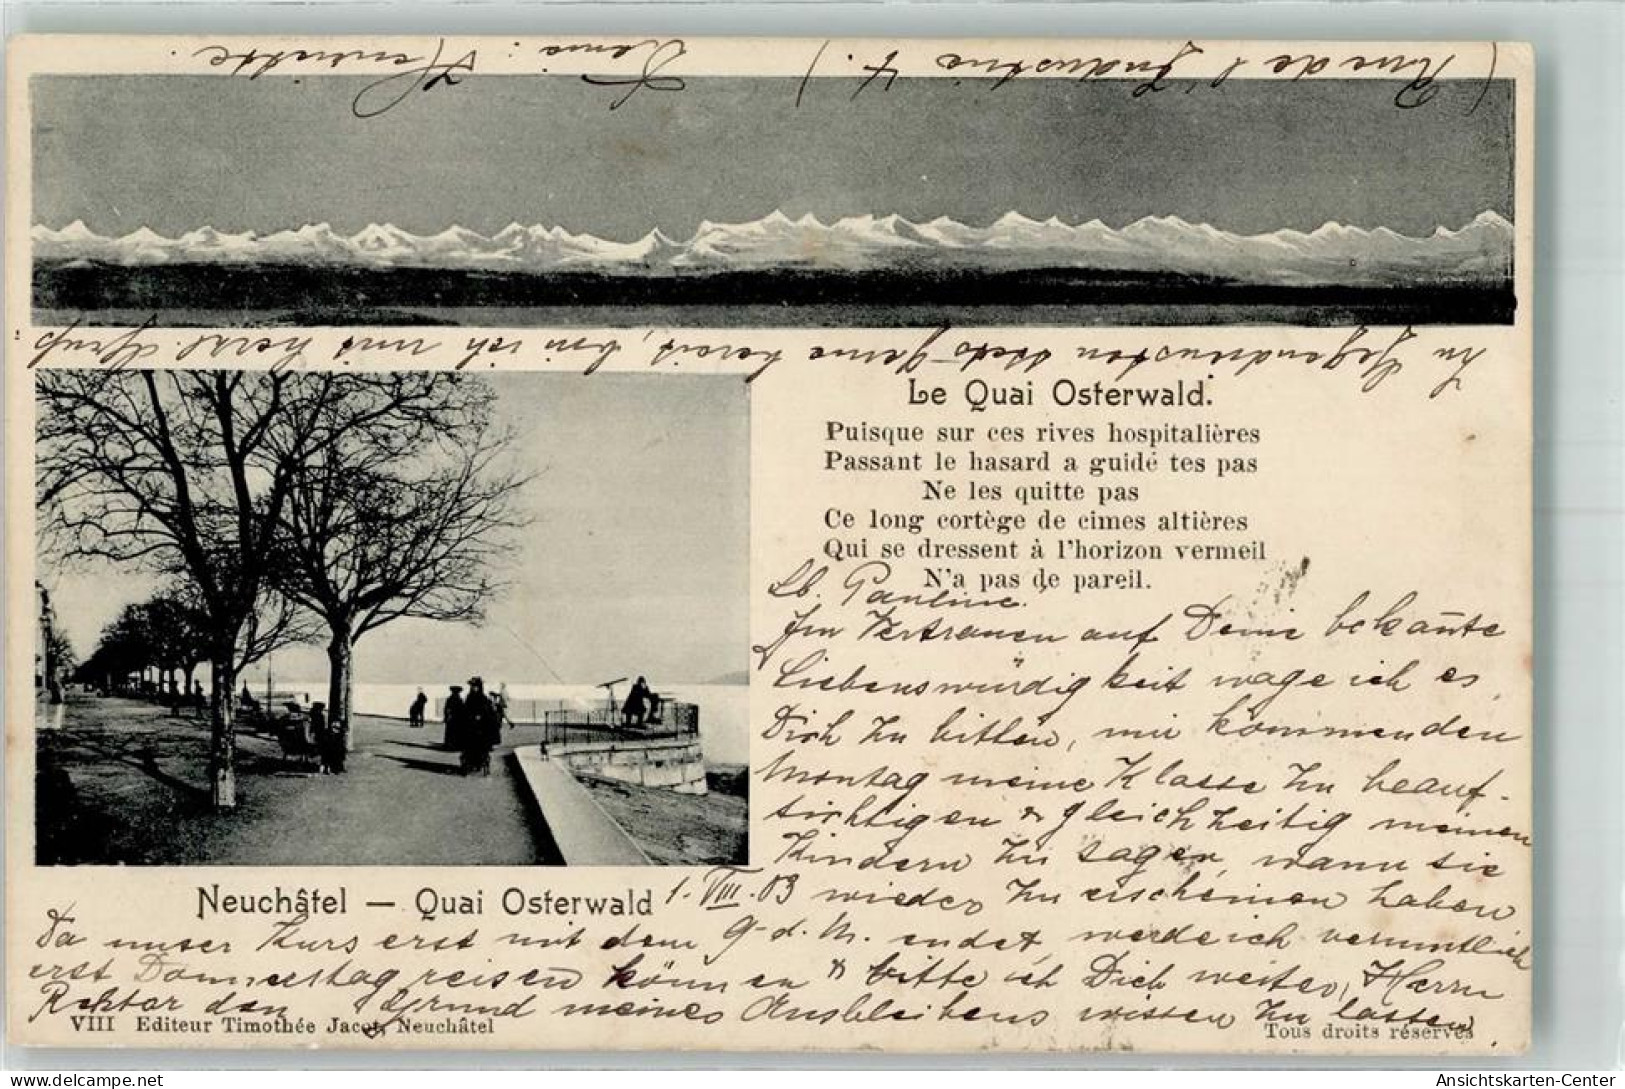 Le Quai Osterwald.
Puisque sur ces rives hospitalières
Passant le hasard a guidé tes pas
Ne les quitte pas
Ce long cortège de cimes altières
Qui se dressent à l'horizon vermeil
N'a pas de pareil.
Lb. Pauline.
Im Vertrauen auf Deine bekan̄te
Liebenswürdigkeit wage ich es
Dich zu bitten, mir kommenden
Montag meine Klasse zu beauf-
sichtigen & gleichzeitig meinen
Kindern zu sagen, wann sie
Neuchâtel — Quai Osterwald
1. VIII. 03
wieder zu erscheinen haben
Da unser Kurs erst mit dem 9-d. M. endet, werde ich vermutlich
erst Donnerstag reisen können & bitte ich Dich weiter, Herrn
Rektor den Grund meines Ausbleibens wissen zu lassen
VIII Editeur Timothée Jacot, Neuchâtel
Tous droits réservés
Zu Gegendiensten stets gerne bereit, bin ich mit herzl. Gruß
Deine: Henriette.
(Rue de l'Industrie 4.)
Ansichtskarten-Center